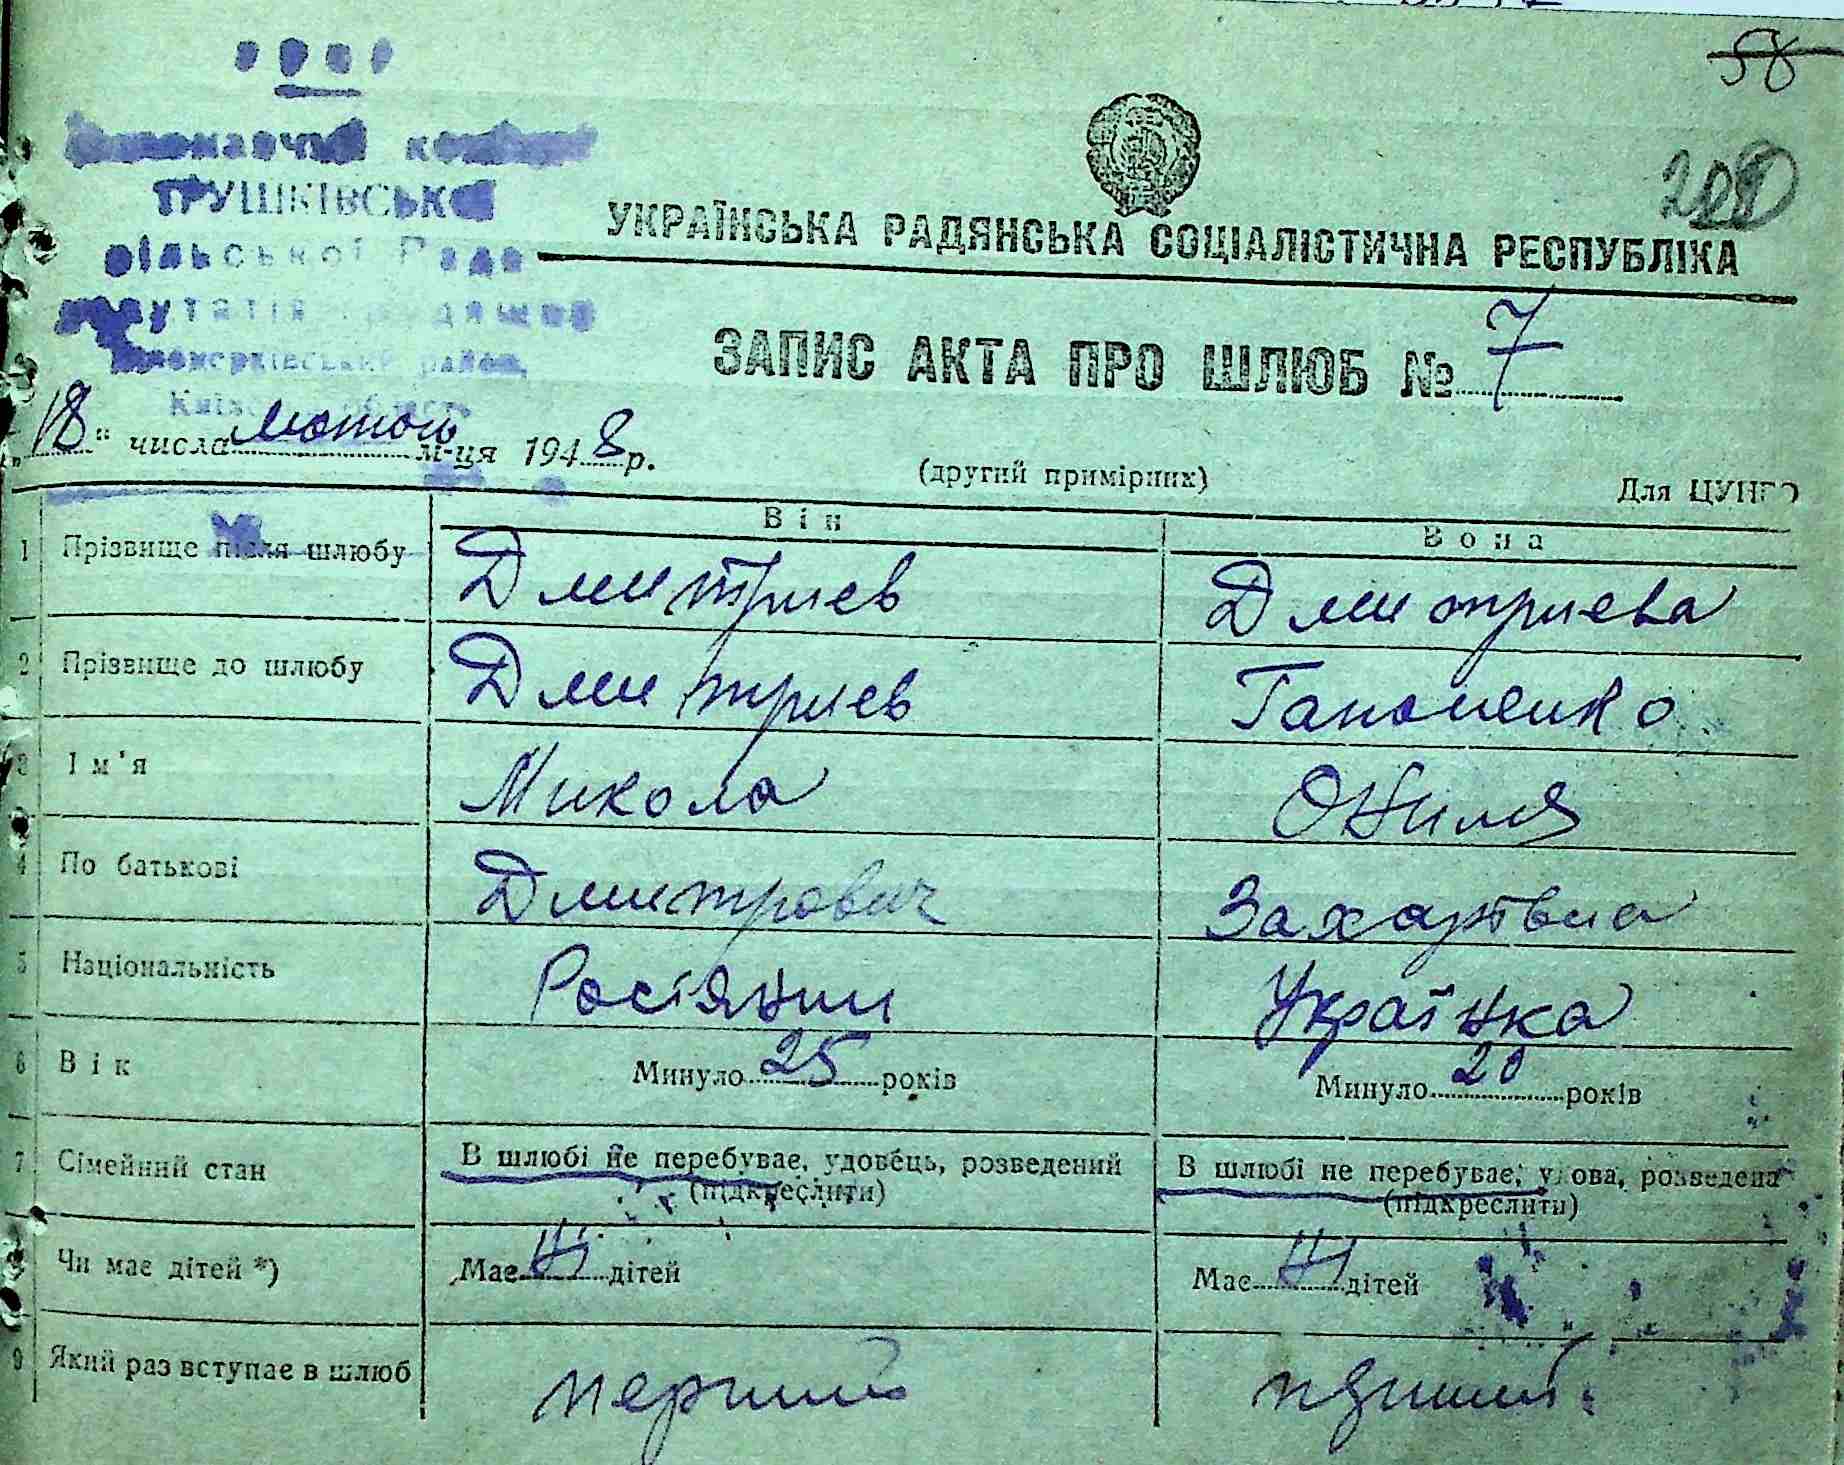 58
УРСР
Виконавчий комітет
ТРУШКІВСЬКОЇ
сільської Ради
депутатів трудящих
Білоцерківський район,
Київської області
УКРАЇНСЬКА РАДЯНСЬКА СОЦІАЛІСТИЧНА РЕСПУБЛІКА
ЗАПИС АКТА ПРО ШЛЮБ № 7
„18“ числа лютого м-ця 1948 р.
(другий примірник)
Для ЦУНГО
Він
Вона
1 Прізвище після шлюбу Дмитриев Дмитриева
2 Прізвище до шлюбу Дмитриев Гапоненко
3 Ім'я Микола
4 По батькові Дмитрович Захарівна
5 Національність Росіянин Українка
6 Вік Минуло 25 років Минуло 20 років
7 Сімейний стан В шлюбі не перебуває, удовець, розведений В шлюбі не перебуває, удова, розведена
(підкреслити) (підкреслити)
8 Чи має дітей *) Має ні дітей Має ні дітей
9 Який раз вступає в шлюб перший перший